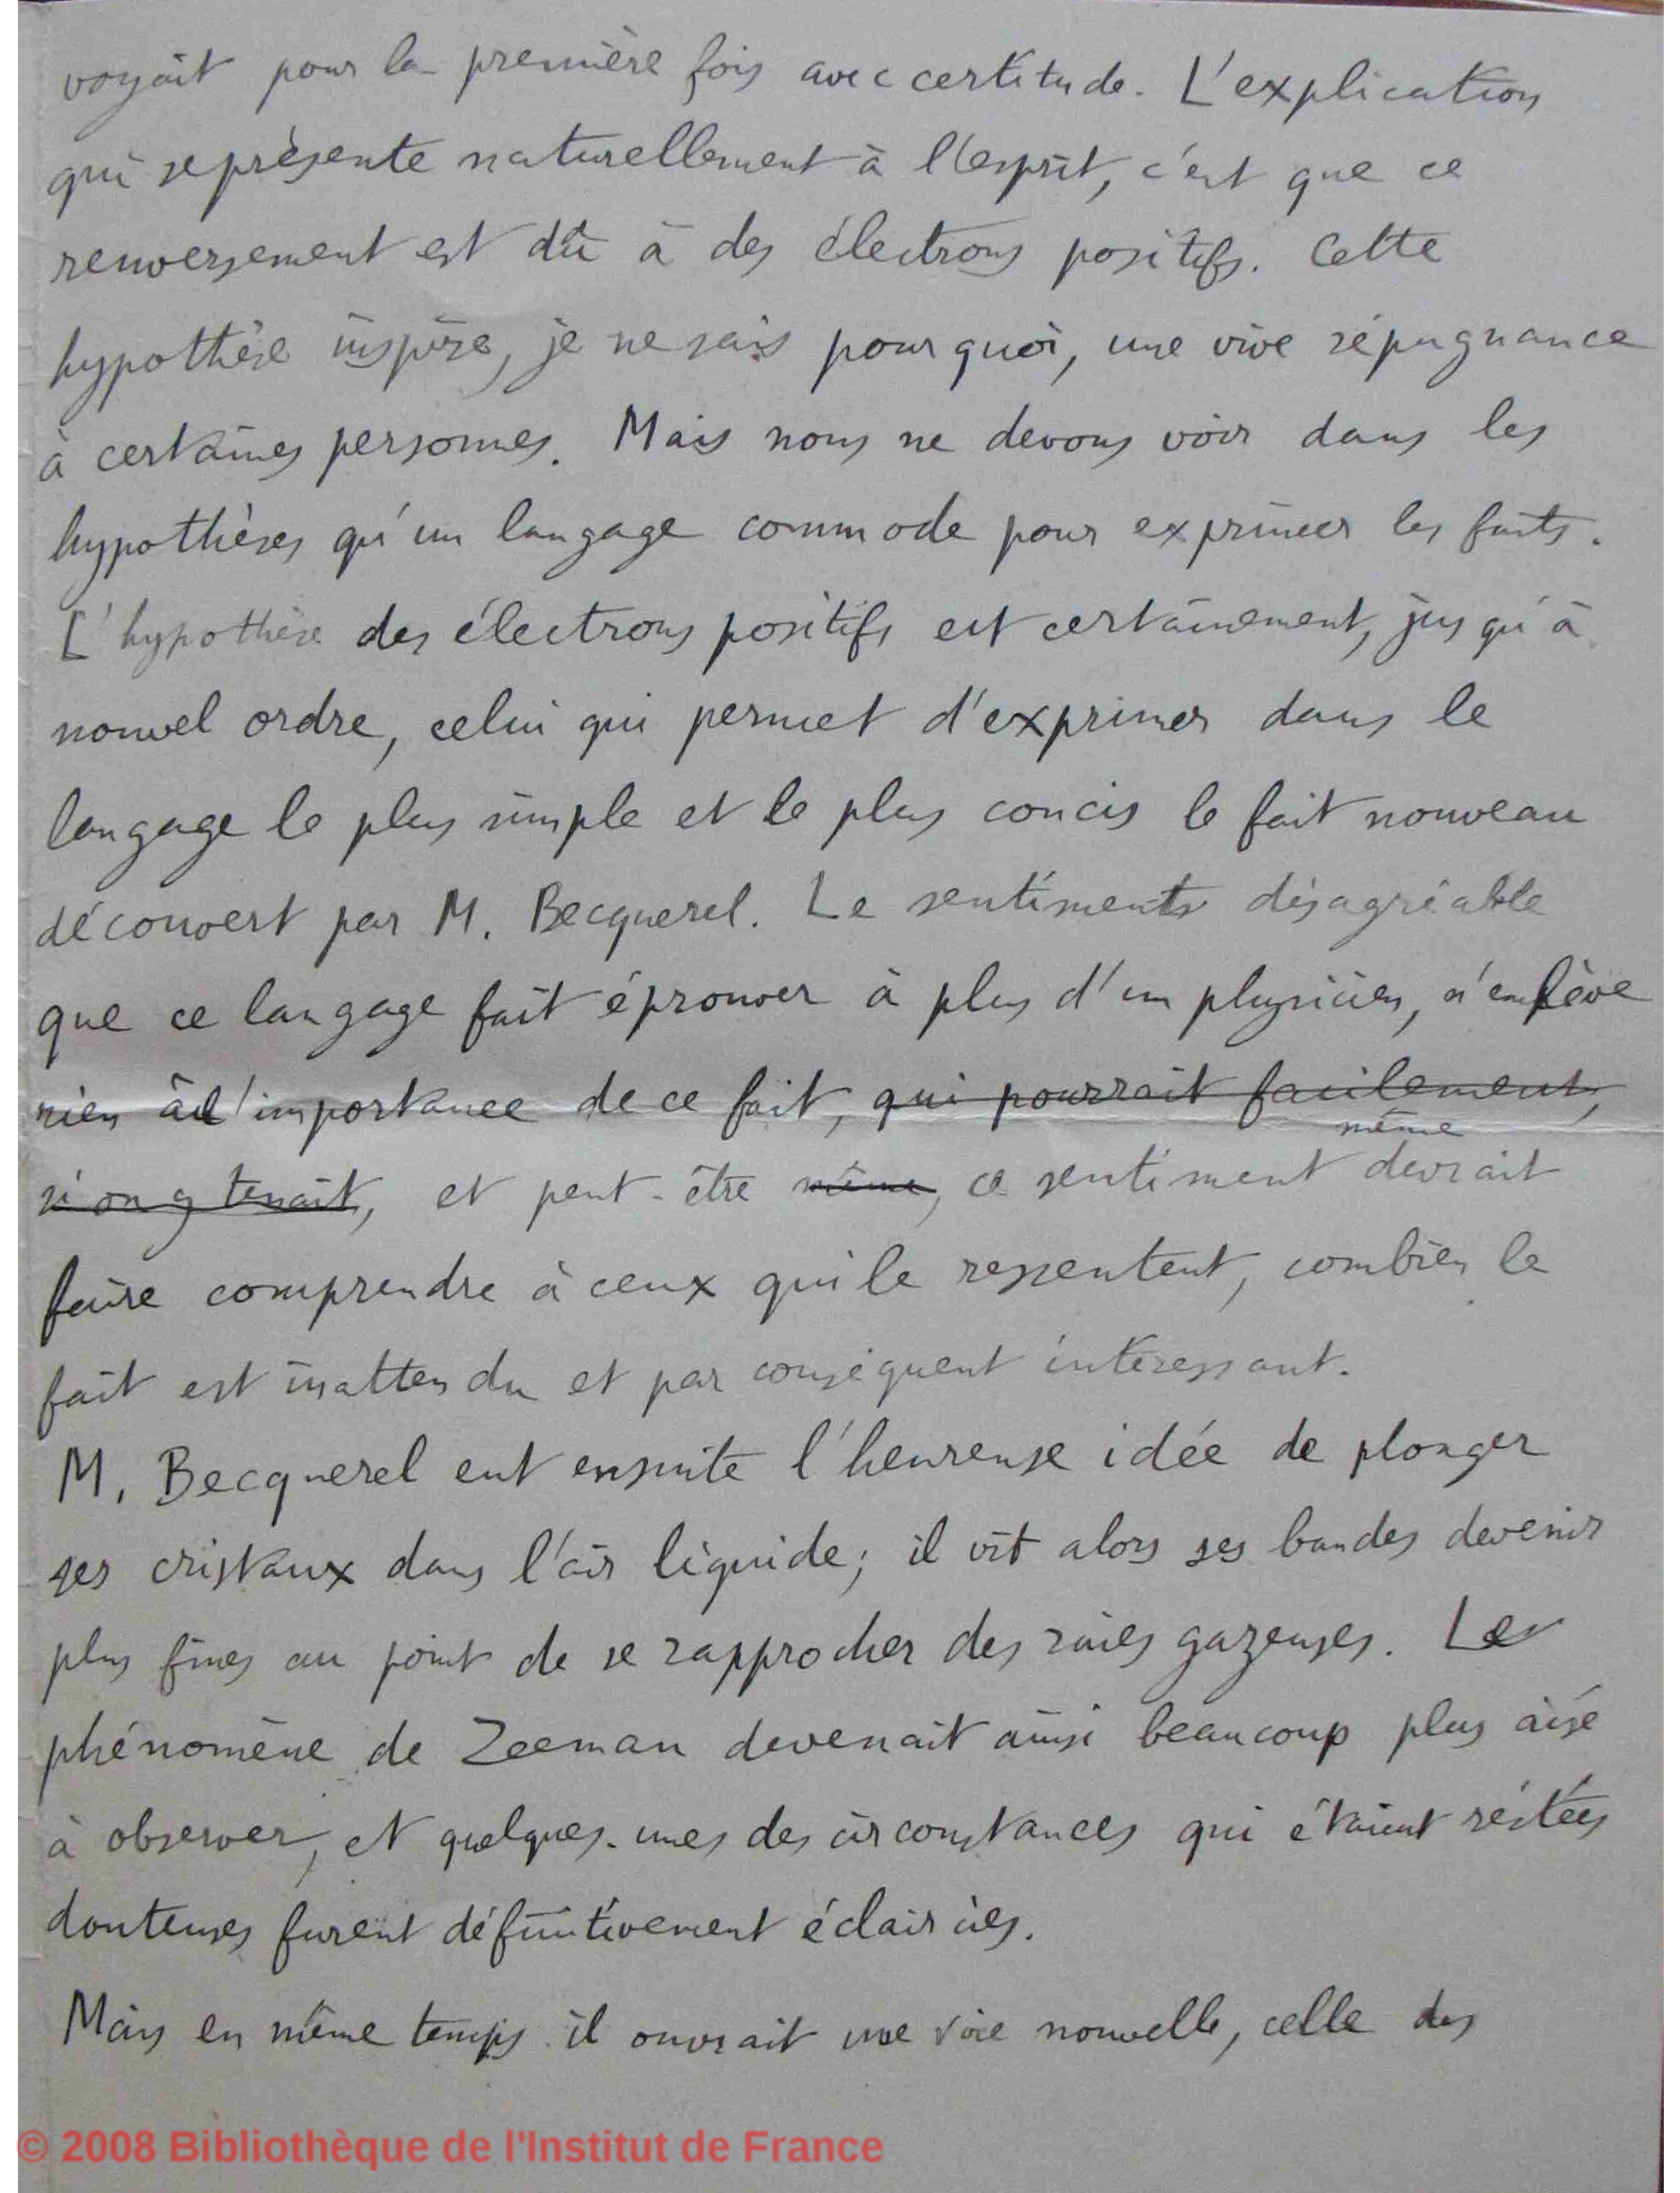 voyait pour la première fois avec certitude. L'explication
qui se présente naturellement à l'esprit, c'est que ce
renversement est dû à des électrons positifs. Cette
hypothèse inspire, je ne sais pourquoi, une vive répugnance
à certaines personnes. Mais nous ne devons voir dans les
hypothèses qu'un langage commode pour exprimer les faits.
L'hypothèse des électrons positifs est certainement, jusqu'à
nouvel ordre, celui qui permet d'exprimer dans le
langage le plus simple et le plus concis le fait nouveau
découvert par M. Becquerel. Le sentiments désagréable
que ce langage fait éprouver à plus d'un physicien, n'enlève
rien à l'importance de ce fait, qui pourrait facilement,
même
si on y tenait, et peut-être même, ce sentiment devrait
faire comprendre à ceux qui le ressentent, combien le
fait est inattendu et par conséquent intéressant.
M. Becquerel eut ensuite l'heureuse idée de plonger
ses cristaux dans l'air liquide; il vit alors ses bandes devenir
plus fines au point de se rapprocher des raies gazeuses. Le
phénomène de Zeeman devenait ainsi beaucoup plus aisé
à observer, et quelques-unes des circonstances qui étaient restées
douteuses furent définitivement éclaircies.
Mais en même temps il ouvrait une voie nouvelle, celle des
© 2008 Bibliothèque de l'Institut de France